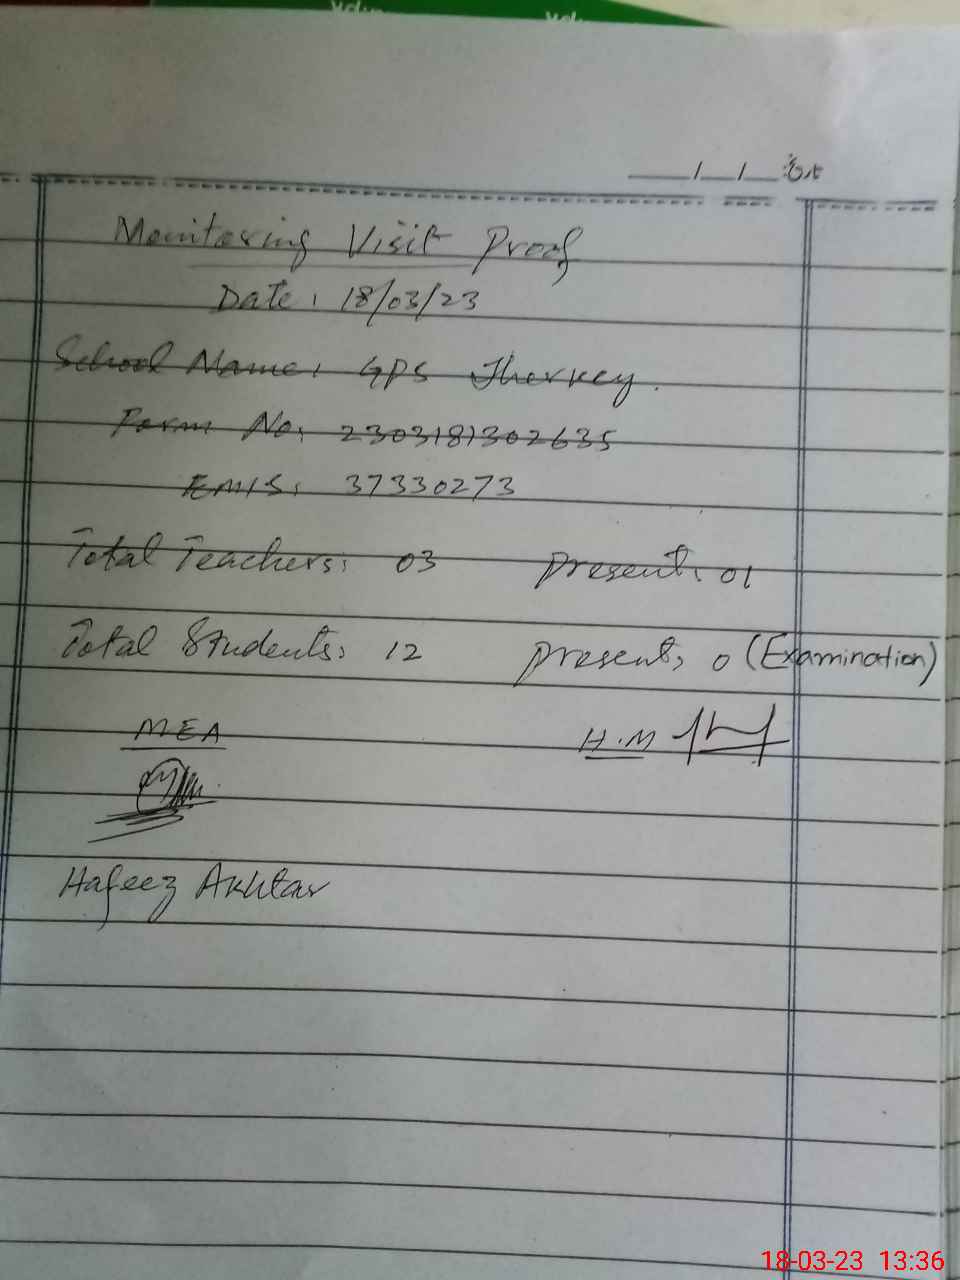 ___/__/___ تاریخ
Monitoring Visit Proof
Date: 18/03/23
School Name: GPS Jherkey.
Form No: 2303181302635
EMIS: 37330273
Total Teachers: 03 Present: 01
Total Students: 12 Present: 0 (Examination)
MEA H.M
Hafeez Akhtar
18-03-23 13:36